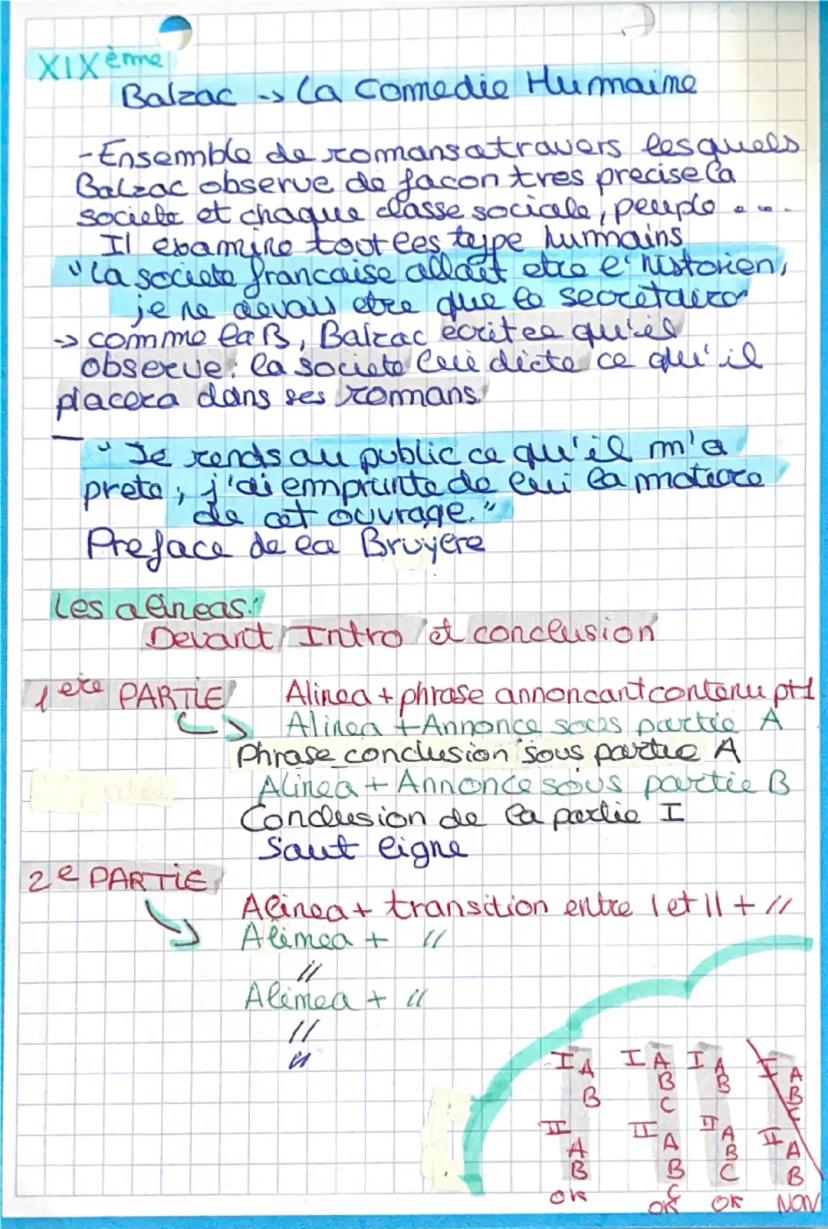 XIXème
Balzac -> La Comedie Humaine
- Ensemble de romans a travers lesquels
Balzac observe de facon tres precise la
societe et chaque classe sociale, peuple ...
Il examine tout les type humains
"La societe francaise allait etre l'historien,
je ne devais etre que le secretaire
-> comme la B, Balzac ecrit ce qu'il
observe: la societe lui dicte ce qu'il
placera dans ses romans.
"Je rends au public ce qu'il m'a
prete; j'ai emprunte de lui la matiere
de cet ouvrage."
Preface de la Bruyere
Les alineas:
Devant Intro et conclusion
1ere PARTIE Alinea + phrase annoncant contenu pt1
Alinea + Annonce sous partie A
Phrase conclusion sous partie A
Alinea + Annonce sous partie B
Conclusion de la partie I
Saut ligne
2e PARTIE
Alinea + transition entre I et II + //
Alinea + //
//
Alinea + //
//
//
I A I A I A I A
B B B B
C C
II A II A II A II A
B B B B
C C
OK OK OK NON